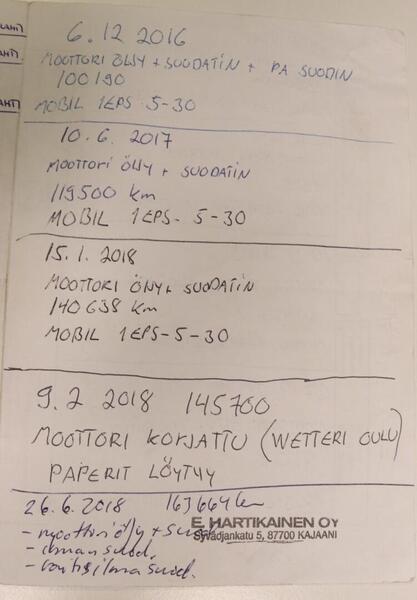 LAHTI
LAHTI
AHTI
6.12 2016
MOOTTORI ÖLJY + SUODATIN + PA SUODIN
100190
MOBIL 1 EPS 5-30
10.6. 2017
MOOTTORI ÖLJY + SUODATIN
119500 km
MOBIL 1 EPS- 5-30
15.1. 2018
MOOTTORI ÖLJY+ SUODATIN
140638 km
MOBIL 1 EPS-5-30
9.2 2018 145700
MOOTTORI KORJATTU (WETTERI OULU)
PAPERIT LÖYTYY
26.6.2018 163664 km
E. HARTIKAINEN OY
- moottoriöljy + suod.
Syväojankatu 5, 87700 KAJAANI
- ilman suod.
- raitisilma suod.